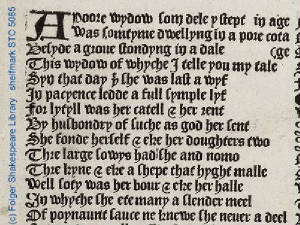 A Poore wydow som dele ystept in age
Was somtyme dwellyng in a pore cotage
Besyde a groue stondyng in a dale
This wydow of whyche I telle you my tale
Syn that day þͭ she was last a wyf
In pacyence ledde a full symple lyf
For lytyll was her catell & her rent
By husbondry of suche as god her sent
She fonde herself & eke her doughters two
Thre large sowys had she and nomo
Thre kyne & eke a shepe that hyght malle
Well soty was her bour & eke her halle
In whyche she ete many a slender meel
Of poynaunt sauce ne knewe she neuer a deel
(c) Folger Shakespeare Library shelfmark STC 5085